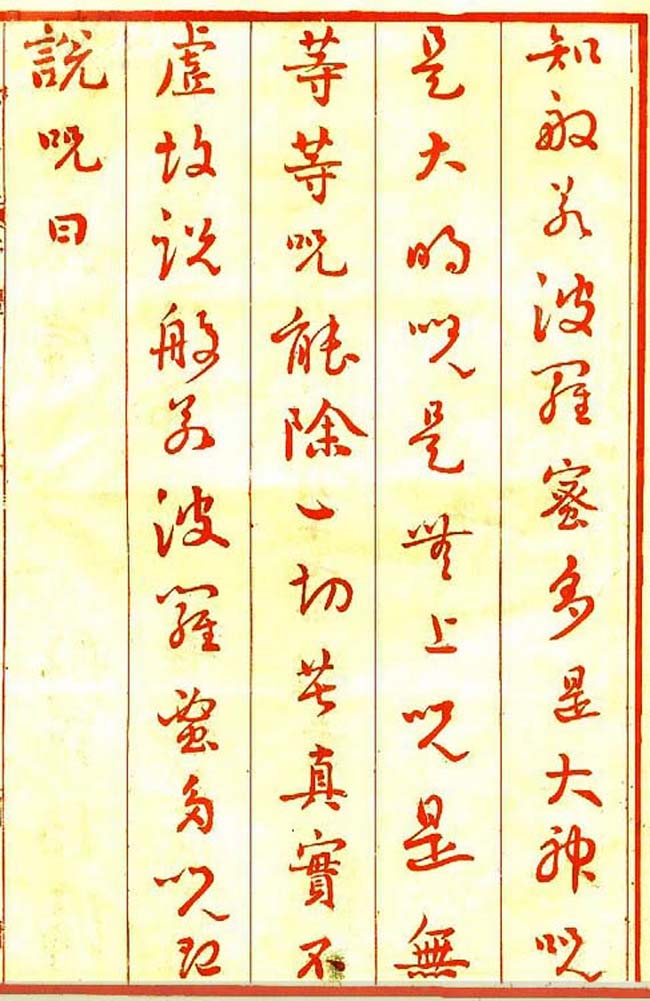 知般若波羅蜜多是大神咒
是大明咒是無上咒是無
等等咒能除一切苦真實不
虛故說般若波羅蜜多咒即
說咒曰